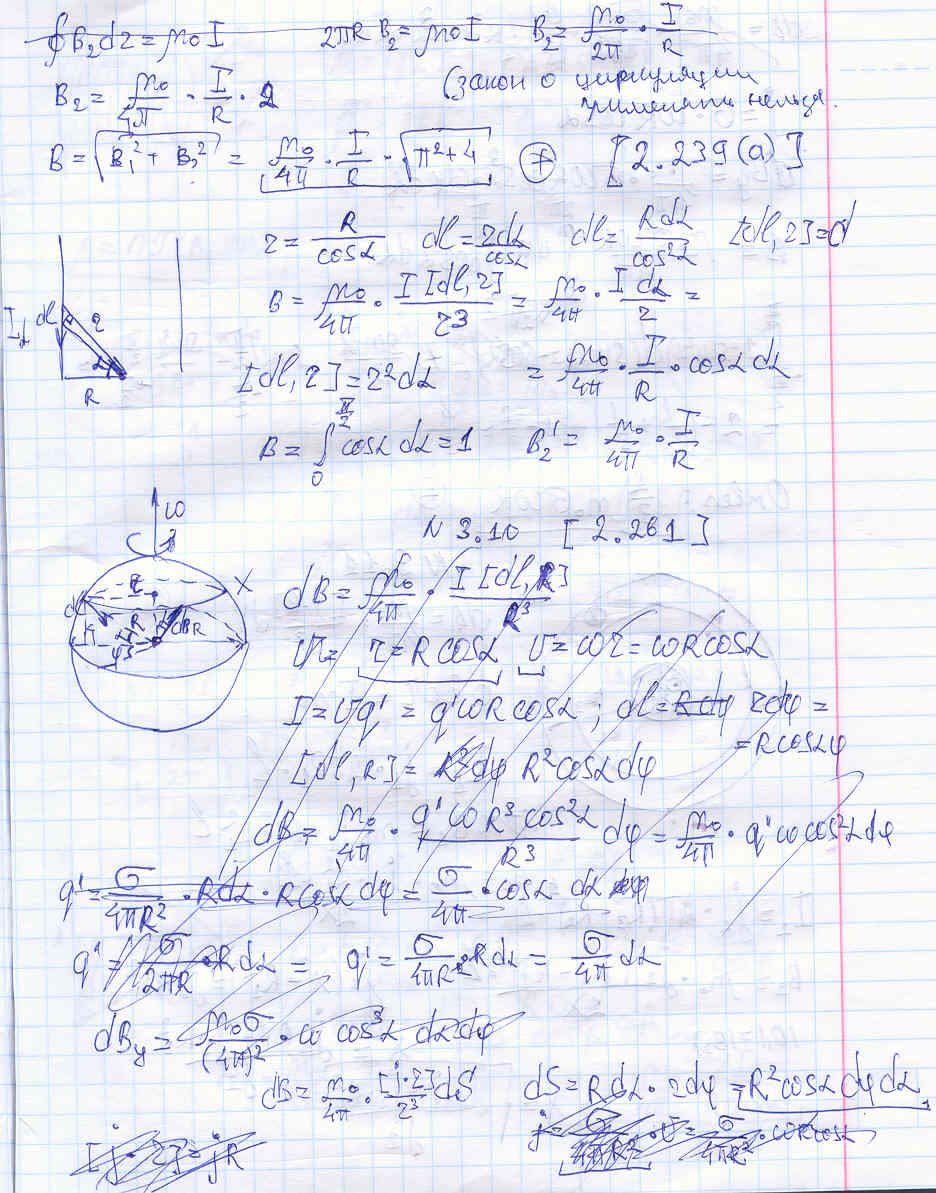 ∮B₂dr = μ₀I   2πR B₂ = μ₀I   B₂ = μ₀/2π · I/R
B₂ = μ₀/4π · I/R · 2   (закон о циркуляции
применять нельзя.
B = √(B₁² + B₂²) = μ₀/4π · I/R · √(π²+4)   (+)   [2.239(а)]
r = R/cosα   dl = rdα/cosα   dl = Rdα/cos²α   [dl, r] =
B = μ₀/4π · I[dl, r]/r³ = μ₀/4π · I dα/r =
I dl r α R
[dl, r] = r²dα   = μ₀/4π · I/R · cosα dα
B = ∫₀^(π/2) cosα dα = 1   B₂' = μ₀/4π · I/R
N 3.10   [2.261]
ω
dB = μ₀/4π · I[dl, R]/R³
r = R cosα   v = ωr = ωR cosα
I = vq' = q'ωR cosα ; dl = Rdφ rdφ =
= R cosαφ
[dl, R] = R²dφ R²cosα dφ
dB = μ₀/4π · q'ωR³cos²α/R³ dφ = μ₀/4π · q'ω cos²α dφ
q' = σ/4πR² · Rdα · R cosα dφ = σ/4π · cosα dα dφ
q' = σ/2πR · Rdα =   q' = σ/4πR² Rdα = σ/4π dα
dBy = μ₀σ/(4π)² · ω cos³α dαdφ
dB = μ₀/4π · [j·r]/r³ dS   dS = Rdα · rdφ = R²cosα dφ dα
j = σ/4πR² · v = σ/4πR² · ωR cosα
[j · r] = jR